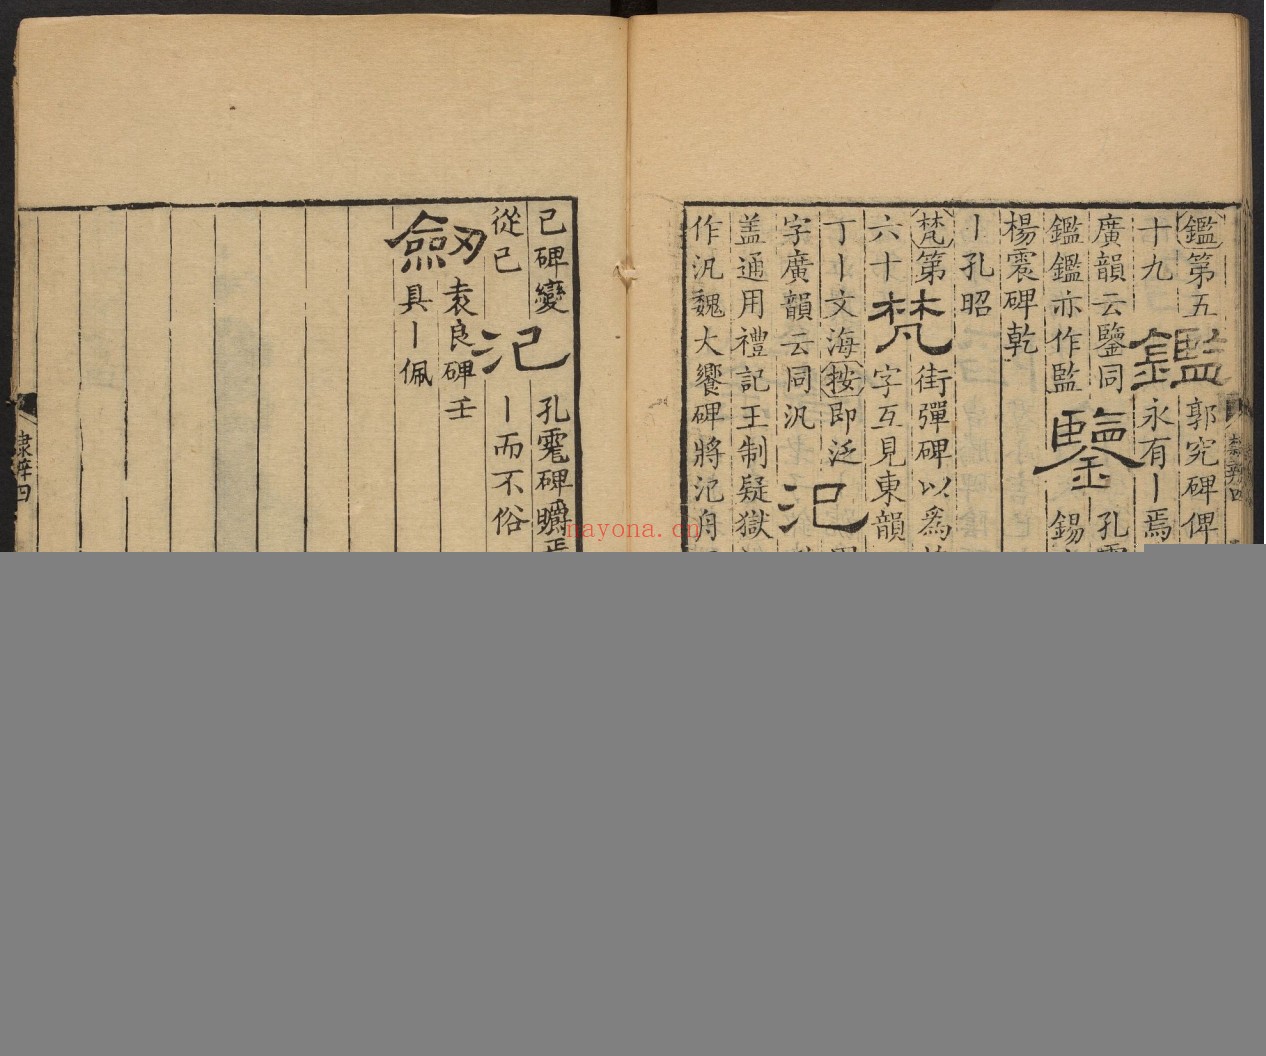 鑑第五
十九
鑑
郭究碑俾
永有丨焉
廣韻云鑒同
鑑鑑亦作監
鑒
孔
錫
楊震碑乾
丨孔昭
梵第
六十
梵
街彈碑以爲
字互見東韻
丁丨文海按即泛
字廣韻云同汎
氾
盖通用禮記王制疑獄
作汎魏大饗碑將氾舟
隸辨四
已碑變
從已
氾
孔寬碑矙焉
丨而不俗
劒
袁良碑壬
具丨佩
隸辨四
nayona.cn